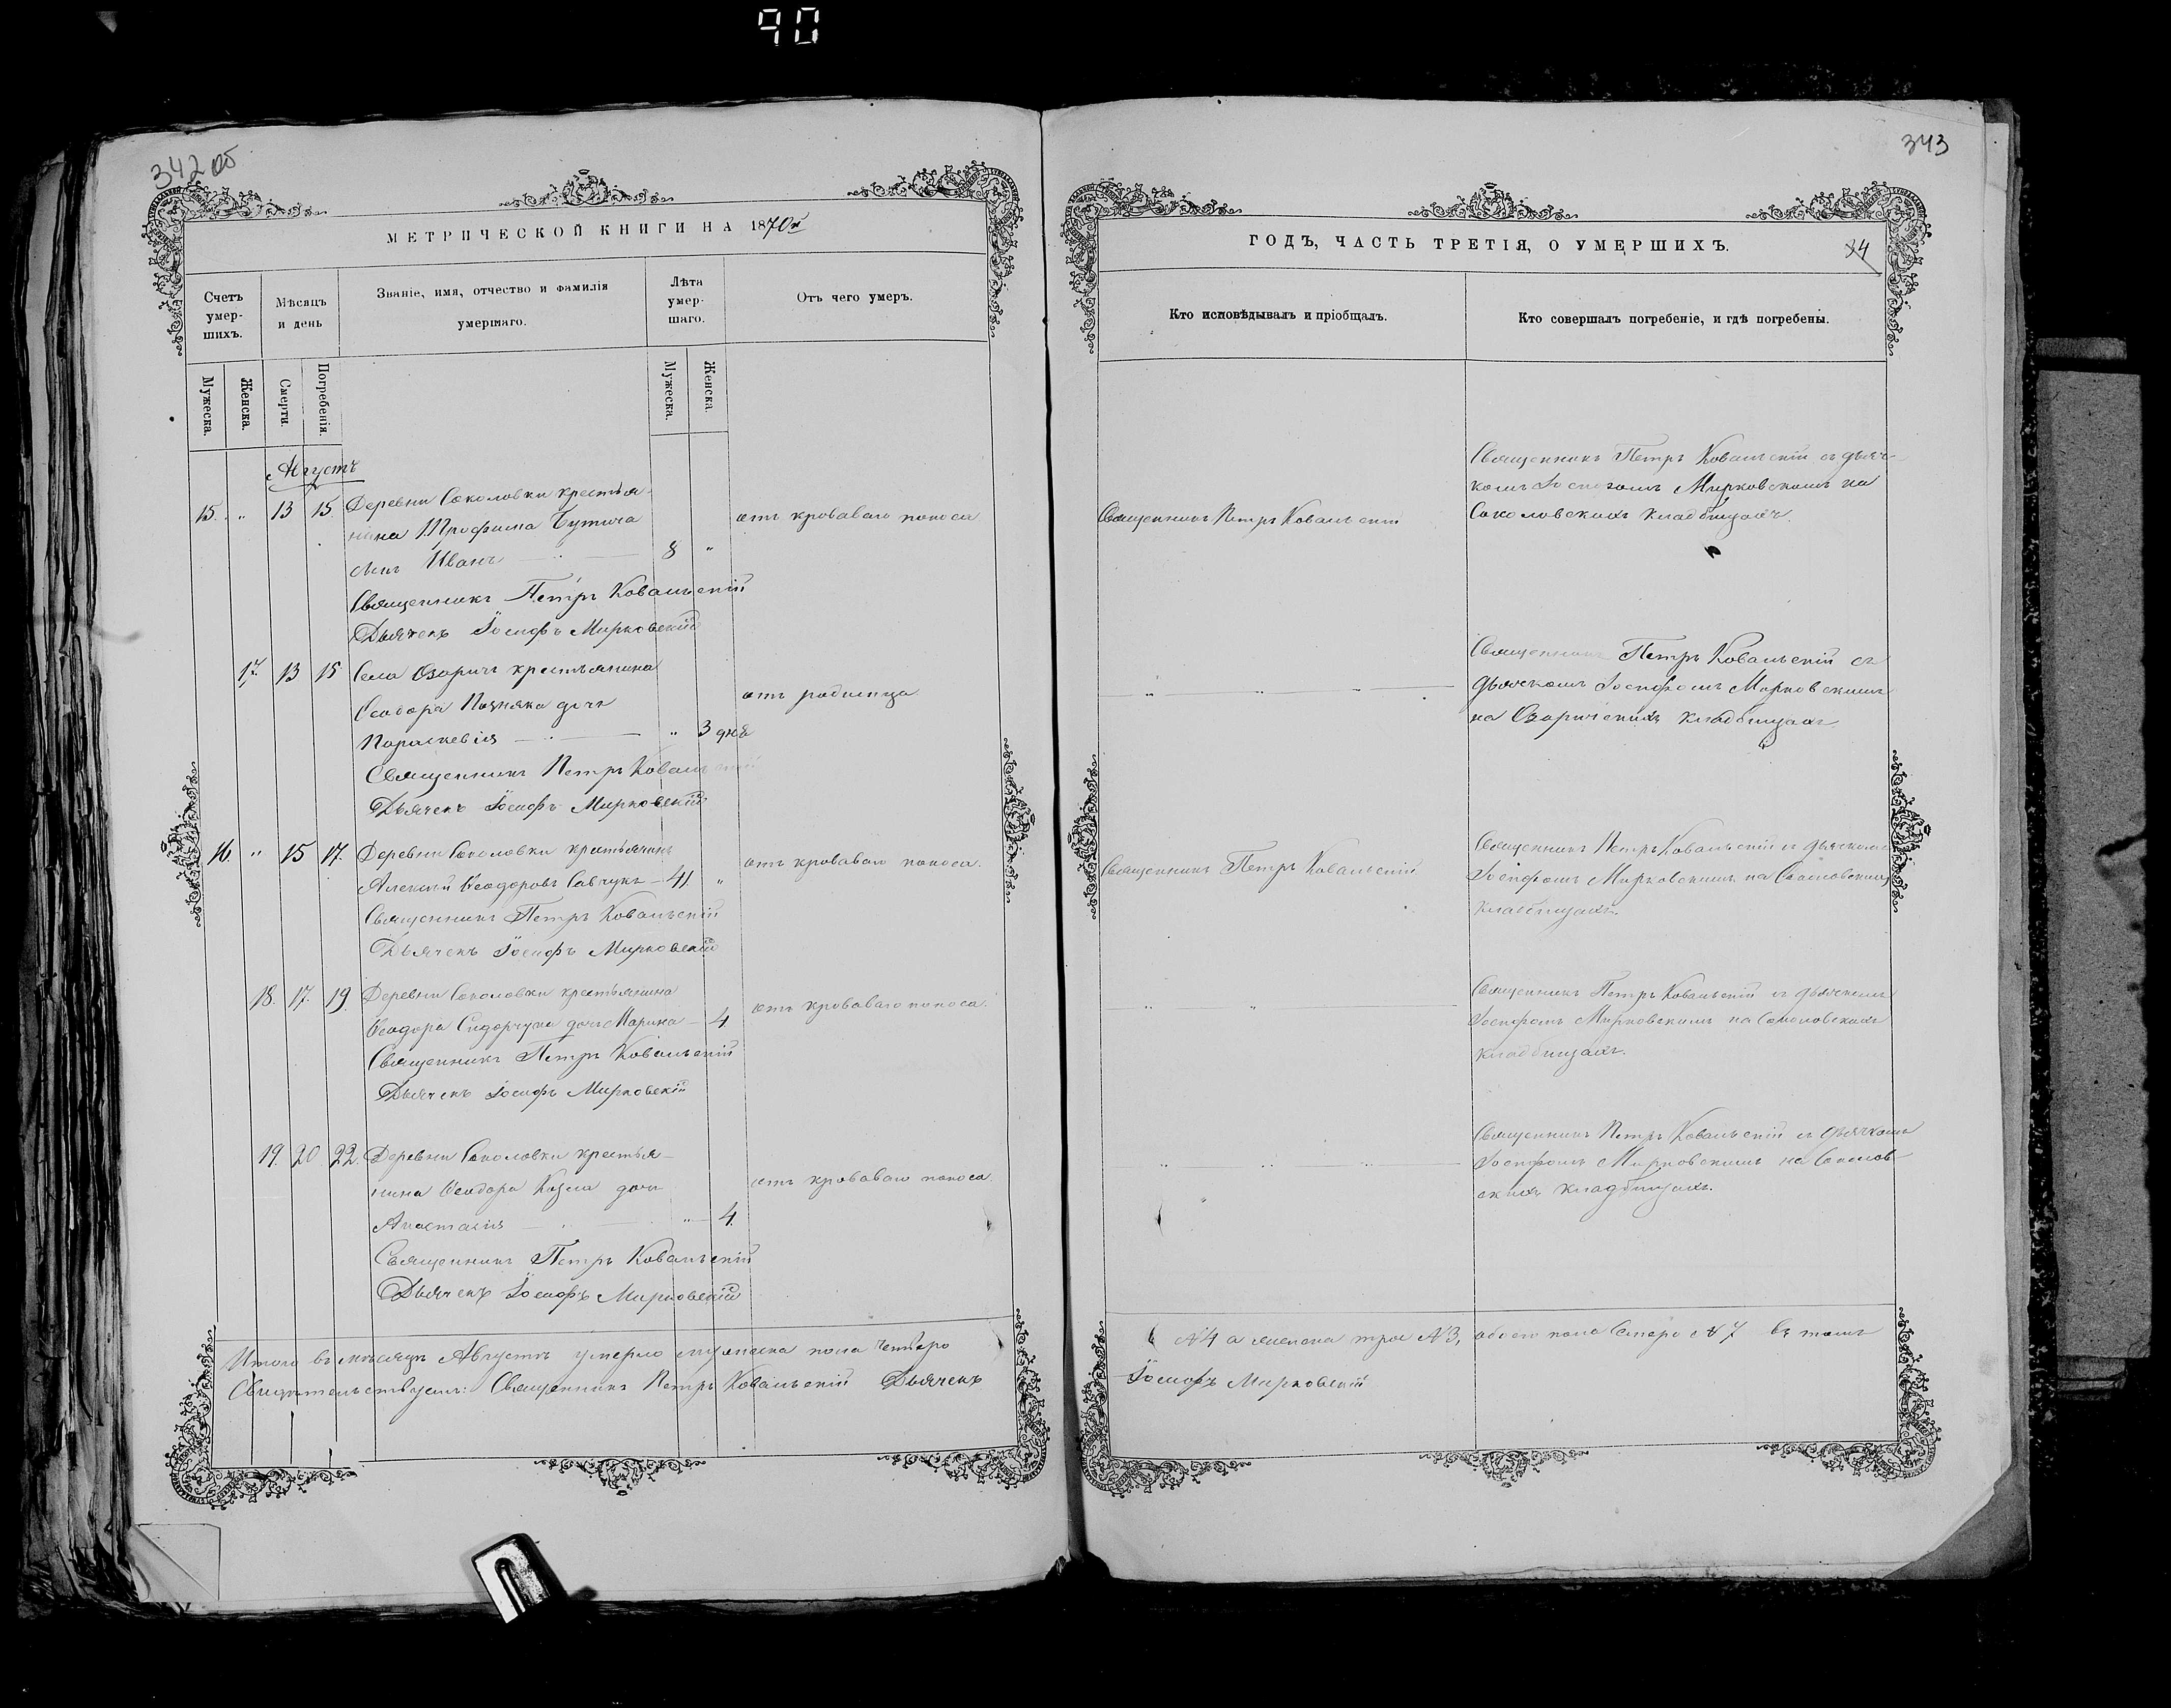 90
342 об
МЕТРИЧЕСКОЙ КНИГИ НА 1870й
Счетъ умер-шихъ.
Мѣсяцъ и день
Званіе, имя, отчество и фамилія умершаго.
Лѣта умер-шаго.
Отъ чего умеръ.
Мужеска.
Женска.
Смерти.
Погребенія.
Мужеска.
Женска.
Августъ
15. " 13 15. Деревни Соколовки крестья-
нина Трофима Бутыча отъ кроваваго поноса
сынъ Иванъ 8 "
Священникъ Петръ Ковальскій
Дьячекъ Іосифъ Мирковскій
17. 13 15 Села Озаричъ крестьянина
Ѳеодора Позняка дочь отъ родимца
Параскевія " 3 дня
Священникъ Петръ Ковальскій
Дьячекъ Іосифъ Мирковскій
16. " 15 17. Деревни Соколовки крестьянинъ отъ кроваваго поноса.
Алексій Ѳеодоровъ Савчукъ 41. "
Священникъ Петръ Ковальскій
Дьячекъ Іосифъ Мирковскій
18. 17. 19. Деревни Соколовки крестьянина отъ кроваваго поноса.
Ѳеодора Сидорчука дочь Марина 4
Священникъ Петръ Ковальскій
Дьячекъ Іосифъ Мирковскій
19. 20 22. Деревни Соколовки крестья-
нина Ѳеодора Козла дочь отъ кроваваго поноса.
Анастасія " 4.
Священникъ Петръ Ковальскій
Дьячекъ Іосифъ Мирковскій
Итого въ мѣсяцѣ Августѣ умерло мужеска пола четверо
Свидѣтельствуемъ: Священникъ Петръ Ковальскій Дьячекъ
343
ГОДЪ, ЧАСТЬ ТРЕТІЯ, О УМЕРШИХЪ.
34
Кто исповѣдывалъ и пріобщалъ.
Кто совершалъ погребеніе, и гдѣ погребены.
Священникъ Петръ Ковальскій съ дьяч-
комъ Іосифомъ Мирковскимъ на
Священникъ Петръ Ковальскій Соколовскихъ кладбищахъ.
Священникъ Петръ Ковальскій съ
" " " дьячкомъ Іосифомъ Мирковскимъ
на Озаричскихъ кладбищахъ
Священникъ Петръ Ковальскій съ дьячкомъ
Священникъ Петръ Ковальскій Іосифомъ Мирковскимъ на Соколовскихъ
кладбищахъ.
Священникъ Петръ Ковальскій съ дьячкомъ
" " Іосифомъ Мирковскимъ на Соколовскихъ
кладбищахъ.
Священникъ Петръ Ковальскій съ дьячкомъ
" " " Іосифомъ Мирковскимъ на Соколов-
скихъ кладбищахъ.
№4 а женска трое №3, обоего пола семеро №7
Іосифъ Мирковскій